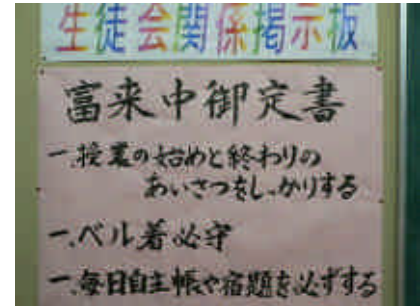 生徒会関係掲示板
富来中御定書
一.授業の始めと終わりの
あいさつをしっかりする
一.ベル着必守
一.毎日自主帳や宿題を必ずする